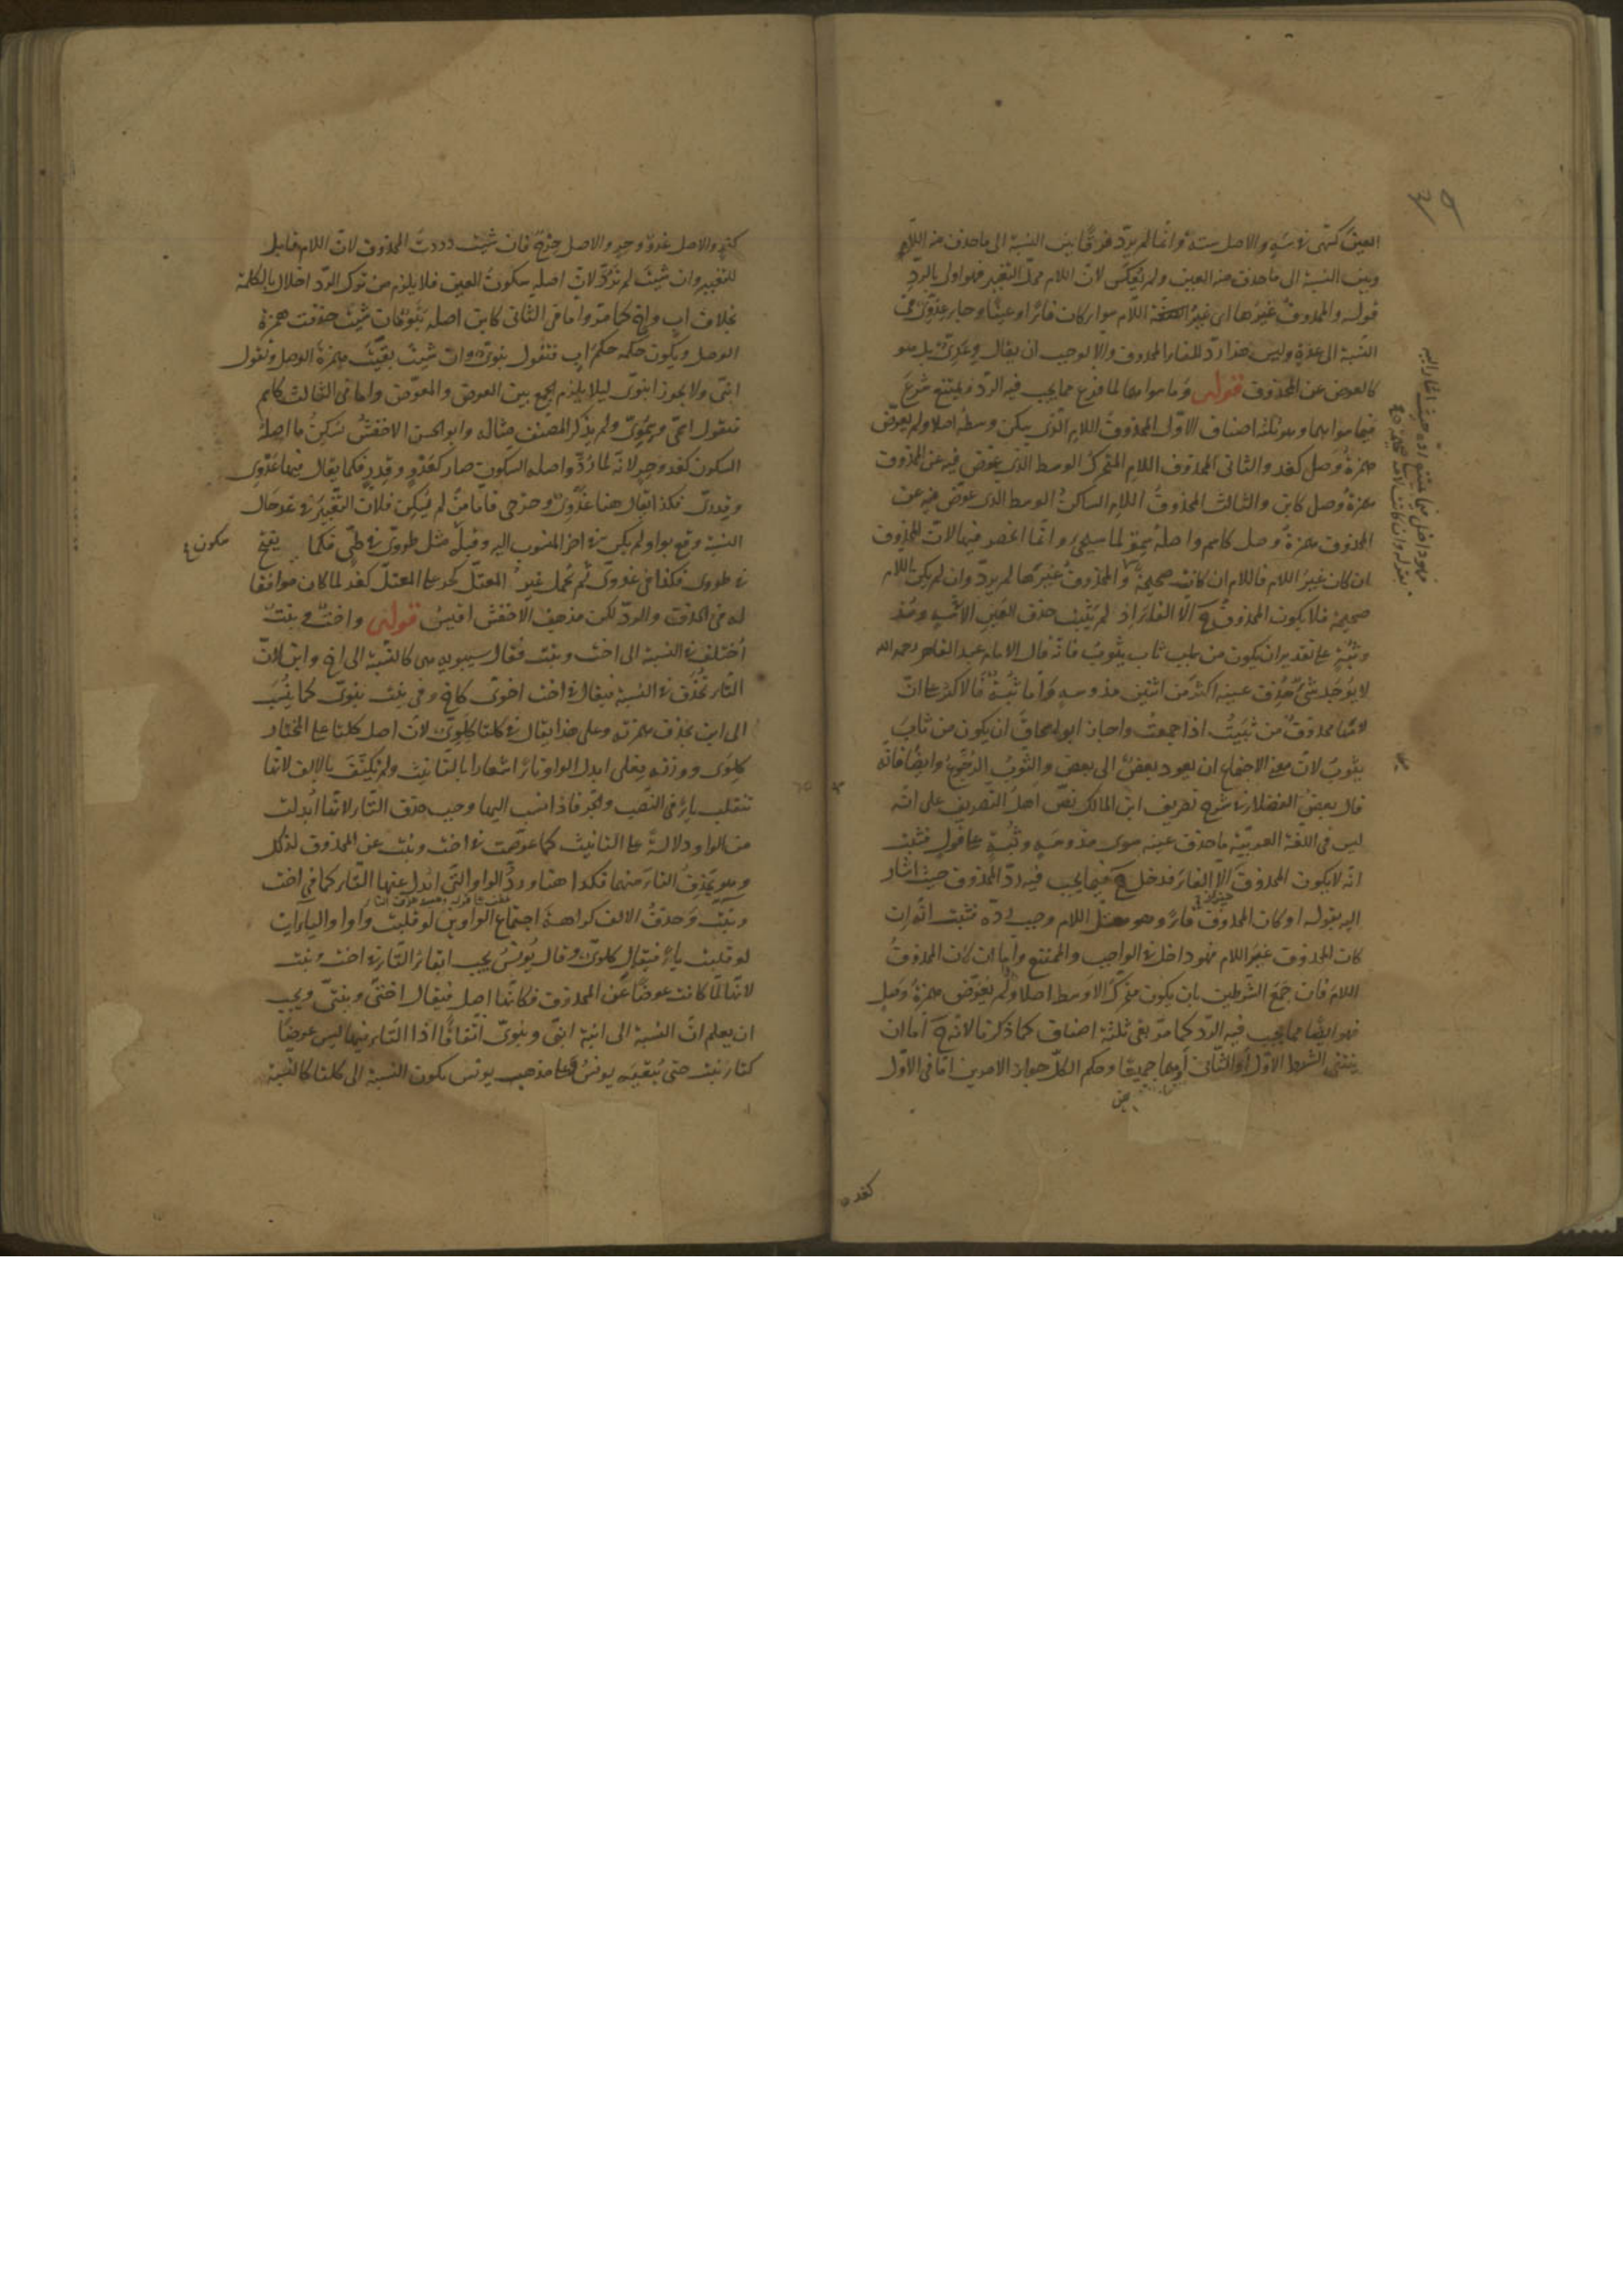 العين كسهى في سه والاصل سته وانما لم يرد فرقا بين النسبة الى ما حذف منه اللام
وبين النسبة الى ما حذف منه العين ولم يعكس لان اللام محل التغيير فهو اولى بالرد
قوله والمحذوف غيرها اى غير اللام سواء كان فاء او عينا وجاء عدوى فى
النسبة الى عدة وليس هذا رد للفاء المحذوف والا لوجب ان يقال وعدى بل هو
كالعوض عن المحذوف قوله وما سواهما لما فرغ مما يجب فيه الرد ويمتنع شرع
فيما سواهما وهو ثلثة اصناف الاول المحذوف اللام الذى سكن وسطه اصلا ولم يعوض
همزة وصل كغد والثانى المحذوف اللام المتحرك الوسط الذى يعوض فيه عن المحذوف
همزة وصل كابن والثالث المحذوف اللام الساكن الوسط الذى عوض فيه عن
المحذوف همزة وصل كاسم واصله سمو لما سيجئ وانما انحصر فيها لان المحذوف
ان كان غير اللام فاللام ان كانت صحيحة والمحذوف غيرها لم يرد وان لم يكن اللام
صحيحة فلا يكون المحذوف ح الا الفاء اذ لم يثبت حذف العين الا فى سه ومذ
وثبة على تقدير ان يكون من باب ثاب يثوب فانه قال الامام عبد القاهر رحمه الله
لا يوجد شئ حذف عينه اكثر من اثنين مذ وسه واما ثبة فالاكثر على ان
لامها محذوف من ثبيت اذا جمعت واجاز ابو اسحاق ان يكون من ثاب
يثوب لان معنى الاجتماع ان يعود بعض الى بعض والثوب الرجوع وايضا فانه
قال بعض الفضلاء فى شرح تصريف ابن المالك نص اهل التصريف على انه
ليس فى اللغة العربية ما حذف عينه سوى مذ وسه وثبة على قول فثبت
انه لا يكون المحذوف الا الفاء فدخل ح فيما يجب فيه رد المحذوف حيث اشار
اليه بقوله او كان المحذوف فاء وهو معتل اللام وجب رده فثبت انه ان
كان المحذوف غير اللام فهو داخل فى الواجب والممتنع واما ان كان المحذوف
اللام فان جمع الشرطين بان يكون متحرك الاوسط اصلا ولم يعوض همزة وصل
فهو ايضا مما يجب فيه الرد كما مر بقى ثلثة اصناف كما ذكرنا لانه ح اما ان
ينتفى الشرط الاول او الثانى او هما جميعا وحكم الكل جواز الامرين اما فى الاول
كغد
كغد والاصل غدو وحر والاصل حرح فان شئت رددت المحذوف لان اللام قابل
للتغيير وان شئت لم ترد لان اصله سكون العين فلا يلزم من ترك الرد اخلال بالكلمة
بخلاف اب واخ كما مر واما فى الثانى كابن اصله بنو فان شئت حذفت همزة
الوصل ويكون حكمه حكم اب فتقول بنوى وان شئت بقيت همزة الوصل وتقول
ابنى ولا يجوز ابنوى ليلا يلزم الجمع بين العوض والمعوض واما فى الثالث كاسم
فتقول اسمى وسموى ولم يذكر المصنف مثاله وابو الحسن الاخفش يسكن ما اصله
السكون كغد وحر لانه لما رد واصله السكون صار كغدو
النسبة وقع بواو لم يكن فى اخر المنسوب اليه وقبله مثل طووى فى طى فكما يفتح
سكون
فى طووى فكذا فى غدوى ثم حمل غير المعتل كحر على المعتل كغد لما كان موافقا
له فى الحذف والرد لكن مذهب الاخفش اقيس قوله واخت وبنت
اختلف فى النسبة الى اخت وبنت فقال سيبويه هى كالنسبة الى اخ وابن لان
التاء تحذف فى النسبة فيقال فى اخت اخوى كاخ وفى بنت بنوى كما ينسب
الى ابن بحذف همزته وعلى هذا يقال فى كلتا كلوى لان اصل كلتا على المختار
كلوى ووزنه فعلى ابدل الواو تاء اشعارا بالتانيث ولم يكتف بالالف لانها
تنقلب ياء فى النصب والجر فاذا نسب اليها وجب حذف التاء لانها ابدلت
من الواو دلالة على التانيث كما عوضت فى اخت وبنت عن المحذوف لذلك
وهو يحذف التاء منهما فكذا هنا ورد الواو التى ابدل عنها التاء كما فى اخت
وبنت وحذف الالف كراهة اجتماع الواوين لو قلبت واوا والياءات
لو قلبت ياء فيقال كلوى وقال يونس يجب ابقاء التاء فى اخت وبنت
لانها لما كانت عوضا عن المحذوف فكانها اصل فيقال اختى وبنتى ويجب
ان يعلم ان النسبة الى ابنة ابنى وبنوى اتفاقا اذا التاء فيها ليس عوضا
كتاء بنت حتى يبقيه يونس وعلى مذهب يونس يكون النسبة الى كلتا كالنسبة